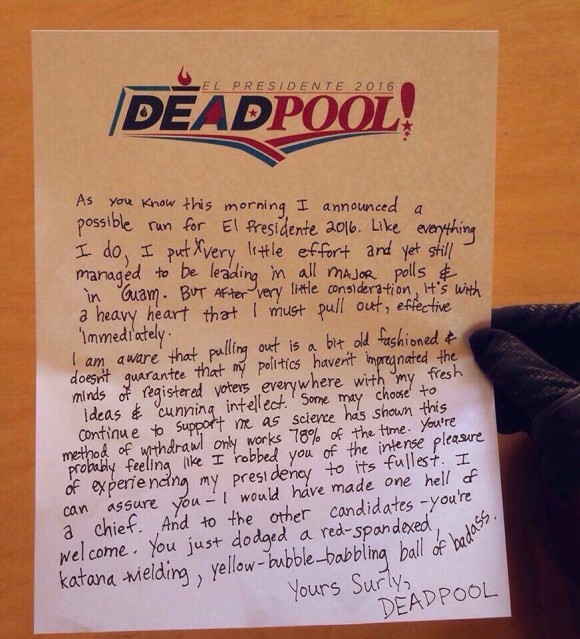 EL PRESIDENTE 2016
DEADPOOL!
As you know this morning, I announced a
possible run for El Presidente 2016. Like everything
I do, I put very little effort and yet still
managed to be leading in all MAJOR polls &
in Guam. BUT After very little consideration, it's with
a heavy heart that I must pull out, effective
immediately.
I am aware that pulling out is a bit old fashioned &
doesn't guarantee that my politics haven't impregnated the
minds of registered voters everywhere with my fresh
ideas & cunning intellect. Some may choose to
continue to support me as science has shown this
method of withdrawl only works 78% of the time. You're
probably feeling like I robbed you of the intense pleasure
of experiencing my presidency to its fullest. I
can assure you - I would have made one hell of
a chief. And to the other candidates - you're
welcome. You just dodged a red-spandexed,
katana wielding, yellow-bubble-babbling ball of badass.
Yours Surly,
DEADPOOL